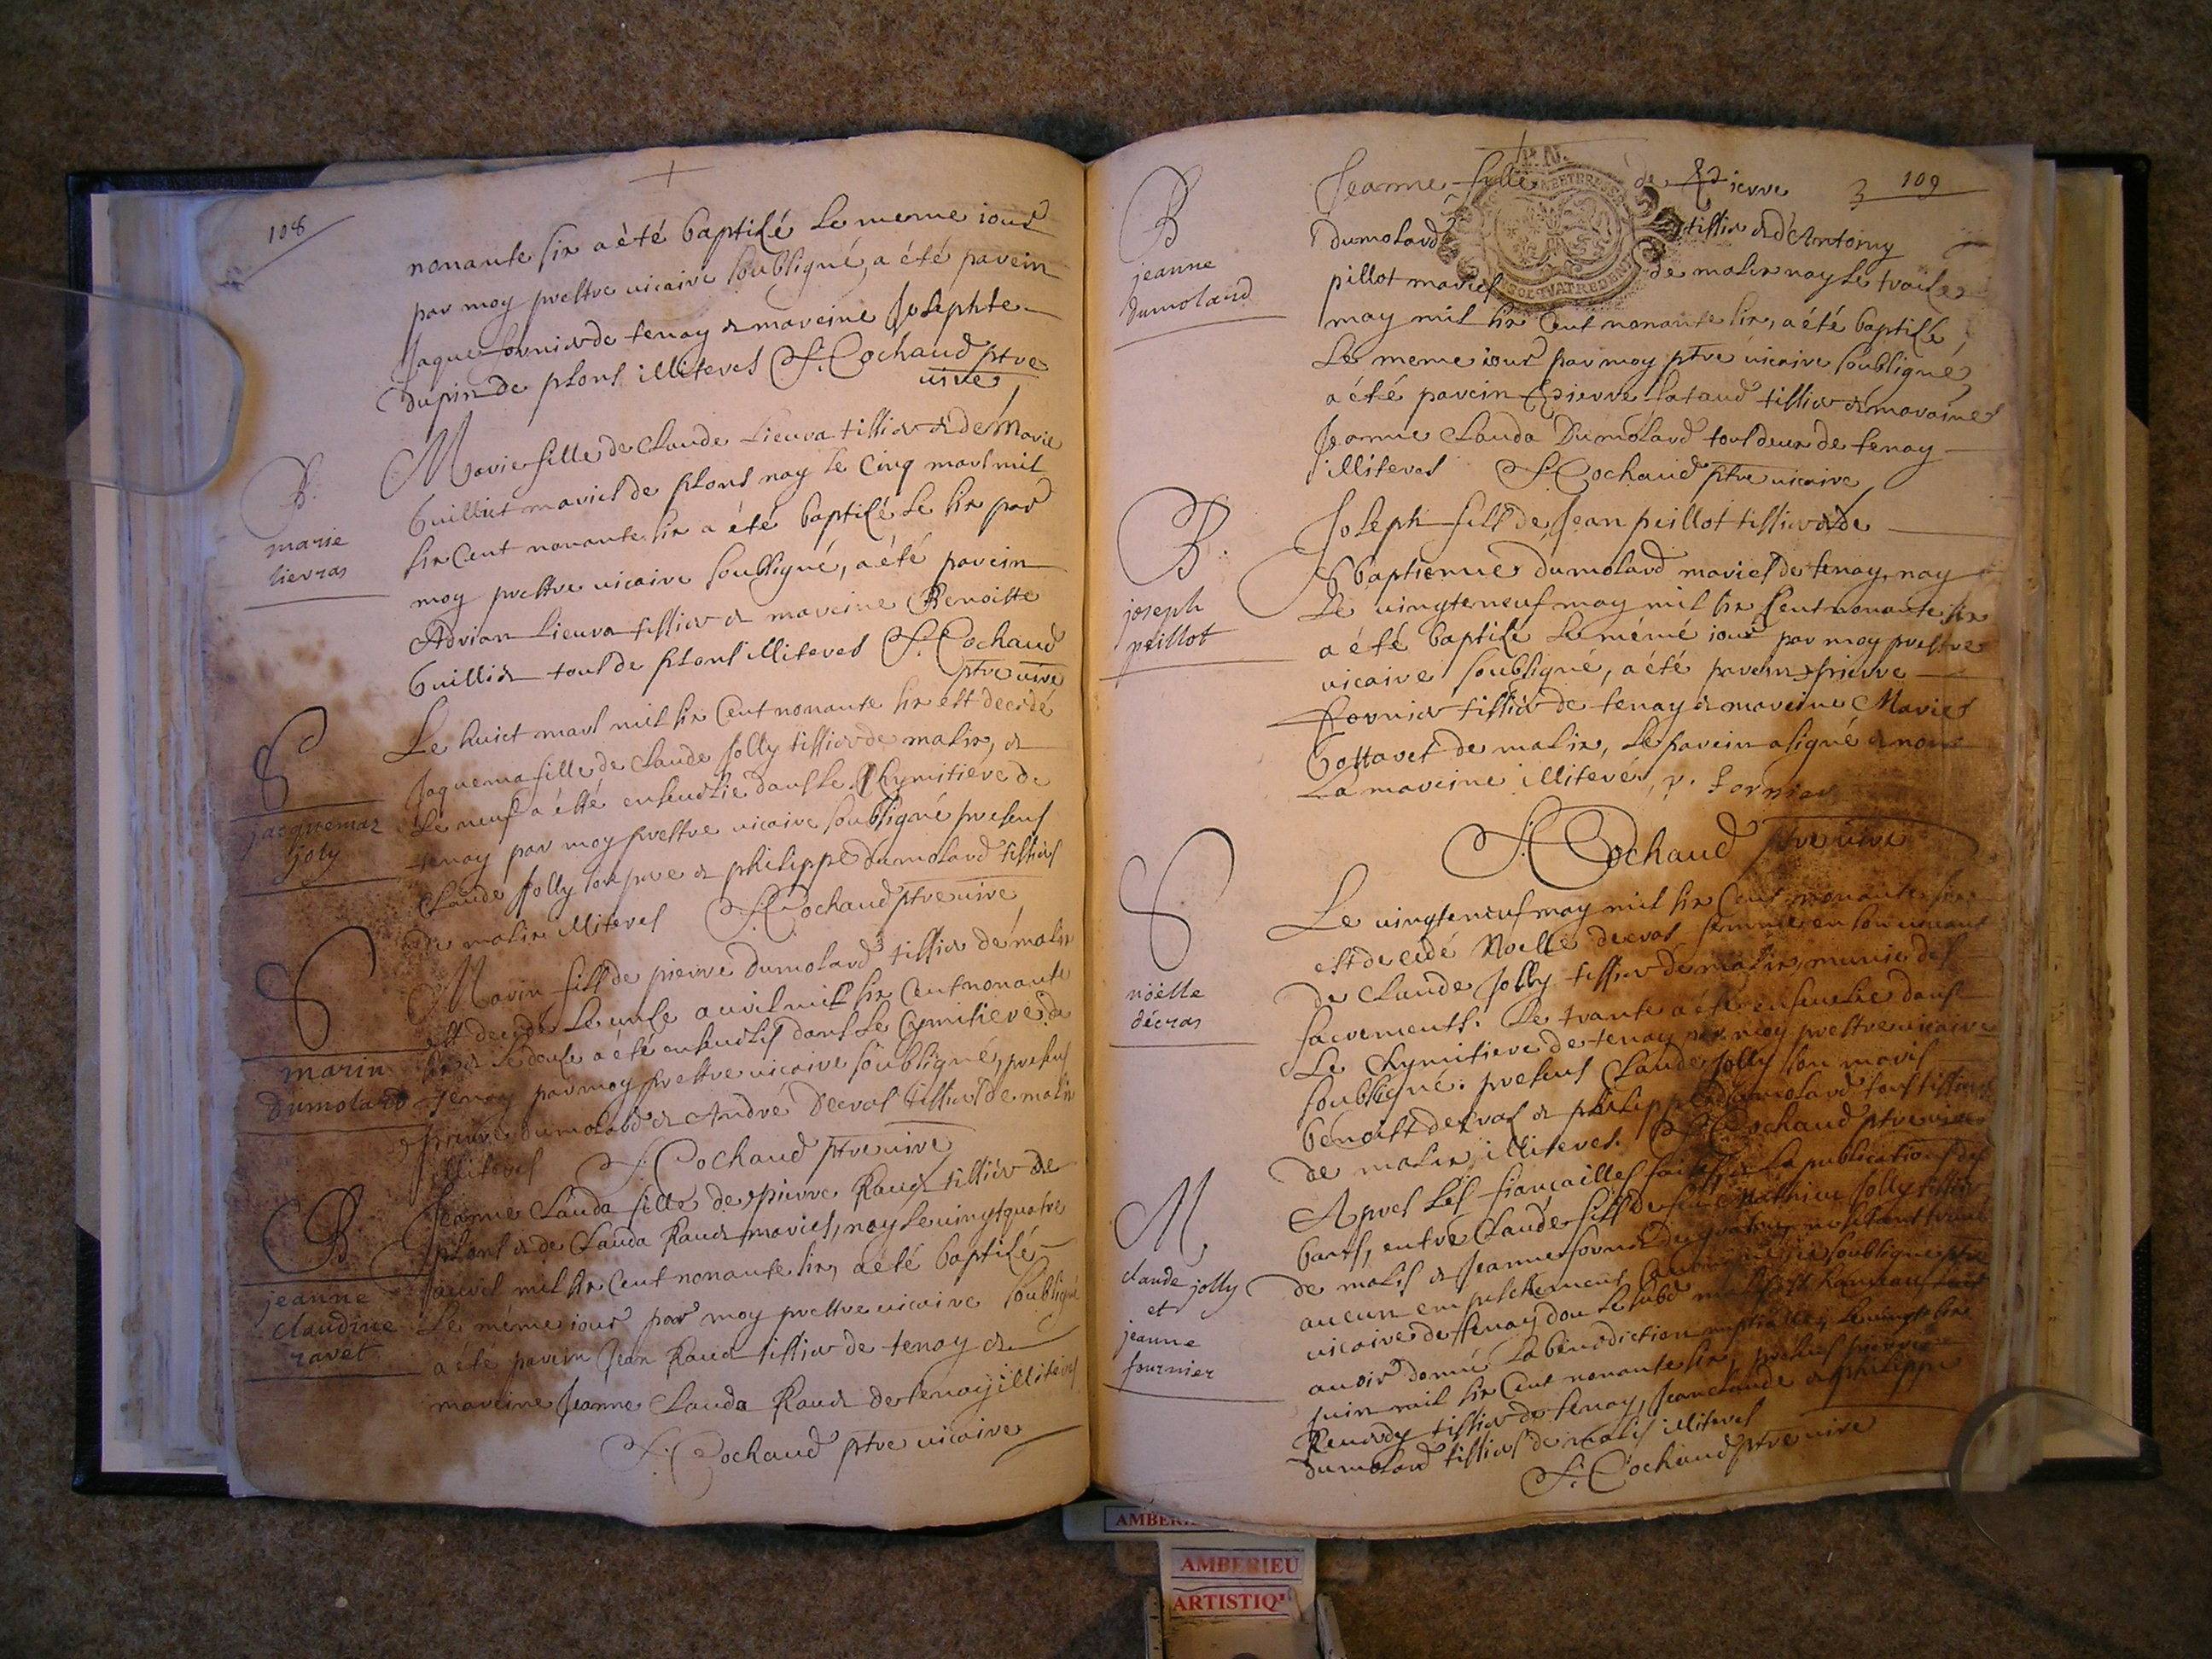 108
nonante six a été baptisé le meme iour
par moy prestre vicaire soubsigné, a été parein
Jaque fornier de tenay & mareine Josephte
dupin de plons illiteres S. Cochaud ptre
vire
B.
marie
lievras
Marie fille de Claude Lieura tissier & de Marie
Guilliet mariés de plons nay le cinq mars mil
six cent nonante six a été baptisé le six par
moy prestre vicaire soubsigné, a été parein
Adrian Lieura tissier & mareine Benoitte
Guillier tous de plons illiteres S. Cochaud
ptre vire
S
jacquemaz
joly
Le huict mars mil six cent nonante six est decedé
Jaquema fille de Claude Jolly tissier de malix, &
le neuf a été ensevelie dans le Chymitiére de
tenay par moy prestre vicaire soubsigné presens
Claude Jolly son pere & philippe dumolard tissiers
de malix illiteres S. Cochaud ptre vire
S
marin
Dumolard
Marin fils de pierre dumolard tissier de malix
est decedé le unse avril mil six cent nonante
six & le douse a été ensevelis dans le Cymitiere de
tenay par moy prestre vicaire soubsigné, presens
pierre dumolard & André Decras tissiers de malix
illiteres S. Cochaud ptre vire
B.
jeanne
claudine
ravet
Jeanne Clauda fille de pierre Raver tissier de
plons & de Clauda Raver mariés, nay le vingt quatre
avril mil six cent nonante six, a été baptisé
le méme iour par moy prestre vicaire soubsigné
a été parein Jean Raver tissier de tenay &
mareine Jeanne Clauda Raver de tenay illiteres
S. Cochaud ptre vicaire
109
B
jeanne
dumolard
Jeanne fille de Pierre
dumolard tissier & d'Antoiny
pillot mariés de malix nay le traise
may mil six cent nonante six, a été baptisé
le meme iour par moy ptre vicaire soubsigné,
a été parein Pierre Lataud tissier & maraine
Jeanne Clauda Dumolard tous deux de tenay
illiteres S. Cochaud ptre vicaire
B.
joseph
peillot
Joseph fils de Jean peillot tissier & de
baptienne dumolard mariés de tenay, nay
le vingteneuf may mil six cent nonante six
a été baptisé le méme iour par moy prestre
vicaire soubsigné, a été parein pierre
fornier tissier de tenay & mareine Marie
bottavet de malix, le parein a signé & non
la mareine illiteré, p. fornier
S. Cochaud ptre vire
S
nöelle
décras
Le vingteneuf may mil six cent nonante six
est decedé Noelle decras femme en son vivant
de Claude Jolly tissier de malix, munie des
sacrements. Le trante a été ensevelie dans
le Chymitiere de tenay par moy prestre vicaire
soubsigné. presens Claude Jolly son maris
benoist decras & philippe dumolard tous tissiers
de malix illiteres. S. Cochaud ptre vire
M
claude jolly
et
jeanne
fournier
Apres les fiançailles faites, & la publications des
bans, entre Claude fils de feu Mathieu Jolly tissier
de malis & Jeanne fornier
aucun empeschement soubsigné ptre
vicaire de tenay
avoir donné la benediction nuptialle, le vingt six
Juin mil six cent nonante six, presens pierre
Renardy tissier de tenay, Jean Claude & philippe
dumolard tissiers de malis illiteres
S. Cochaud ptre vire
AMBERIEU
ARTISTIQ